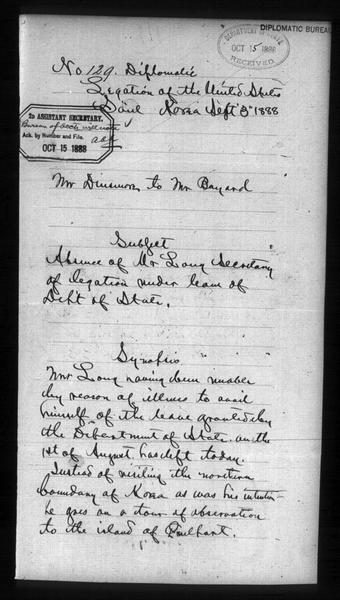 DIPLOMATIC BUREAU
DEPARTMENT OF STATE
OCT 15 1888
RECEIVED
No. 129. Diplomatic
Legation of the United States
Söul Korea Sept 3" 1888
2D ASSISTANT SECRETARY.
Bureau of
Ack. by Number and File.
OCT 15 1888
Mr Dinsmore to Mr Bayard
Subject
Absence of Mr Long Secretary
of legation under leave of
Dep't of State.
Synopsis
Mr Long having been unable
by reason of illness to avail
himself of the leave granted by
the Department of State on the
1st of August has left today.
Instead of visiting the northern
boundary of Korea as was his intention
he goes on a tour of observation
to the island of Quelpart.